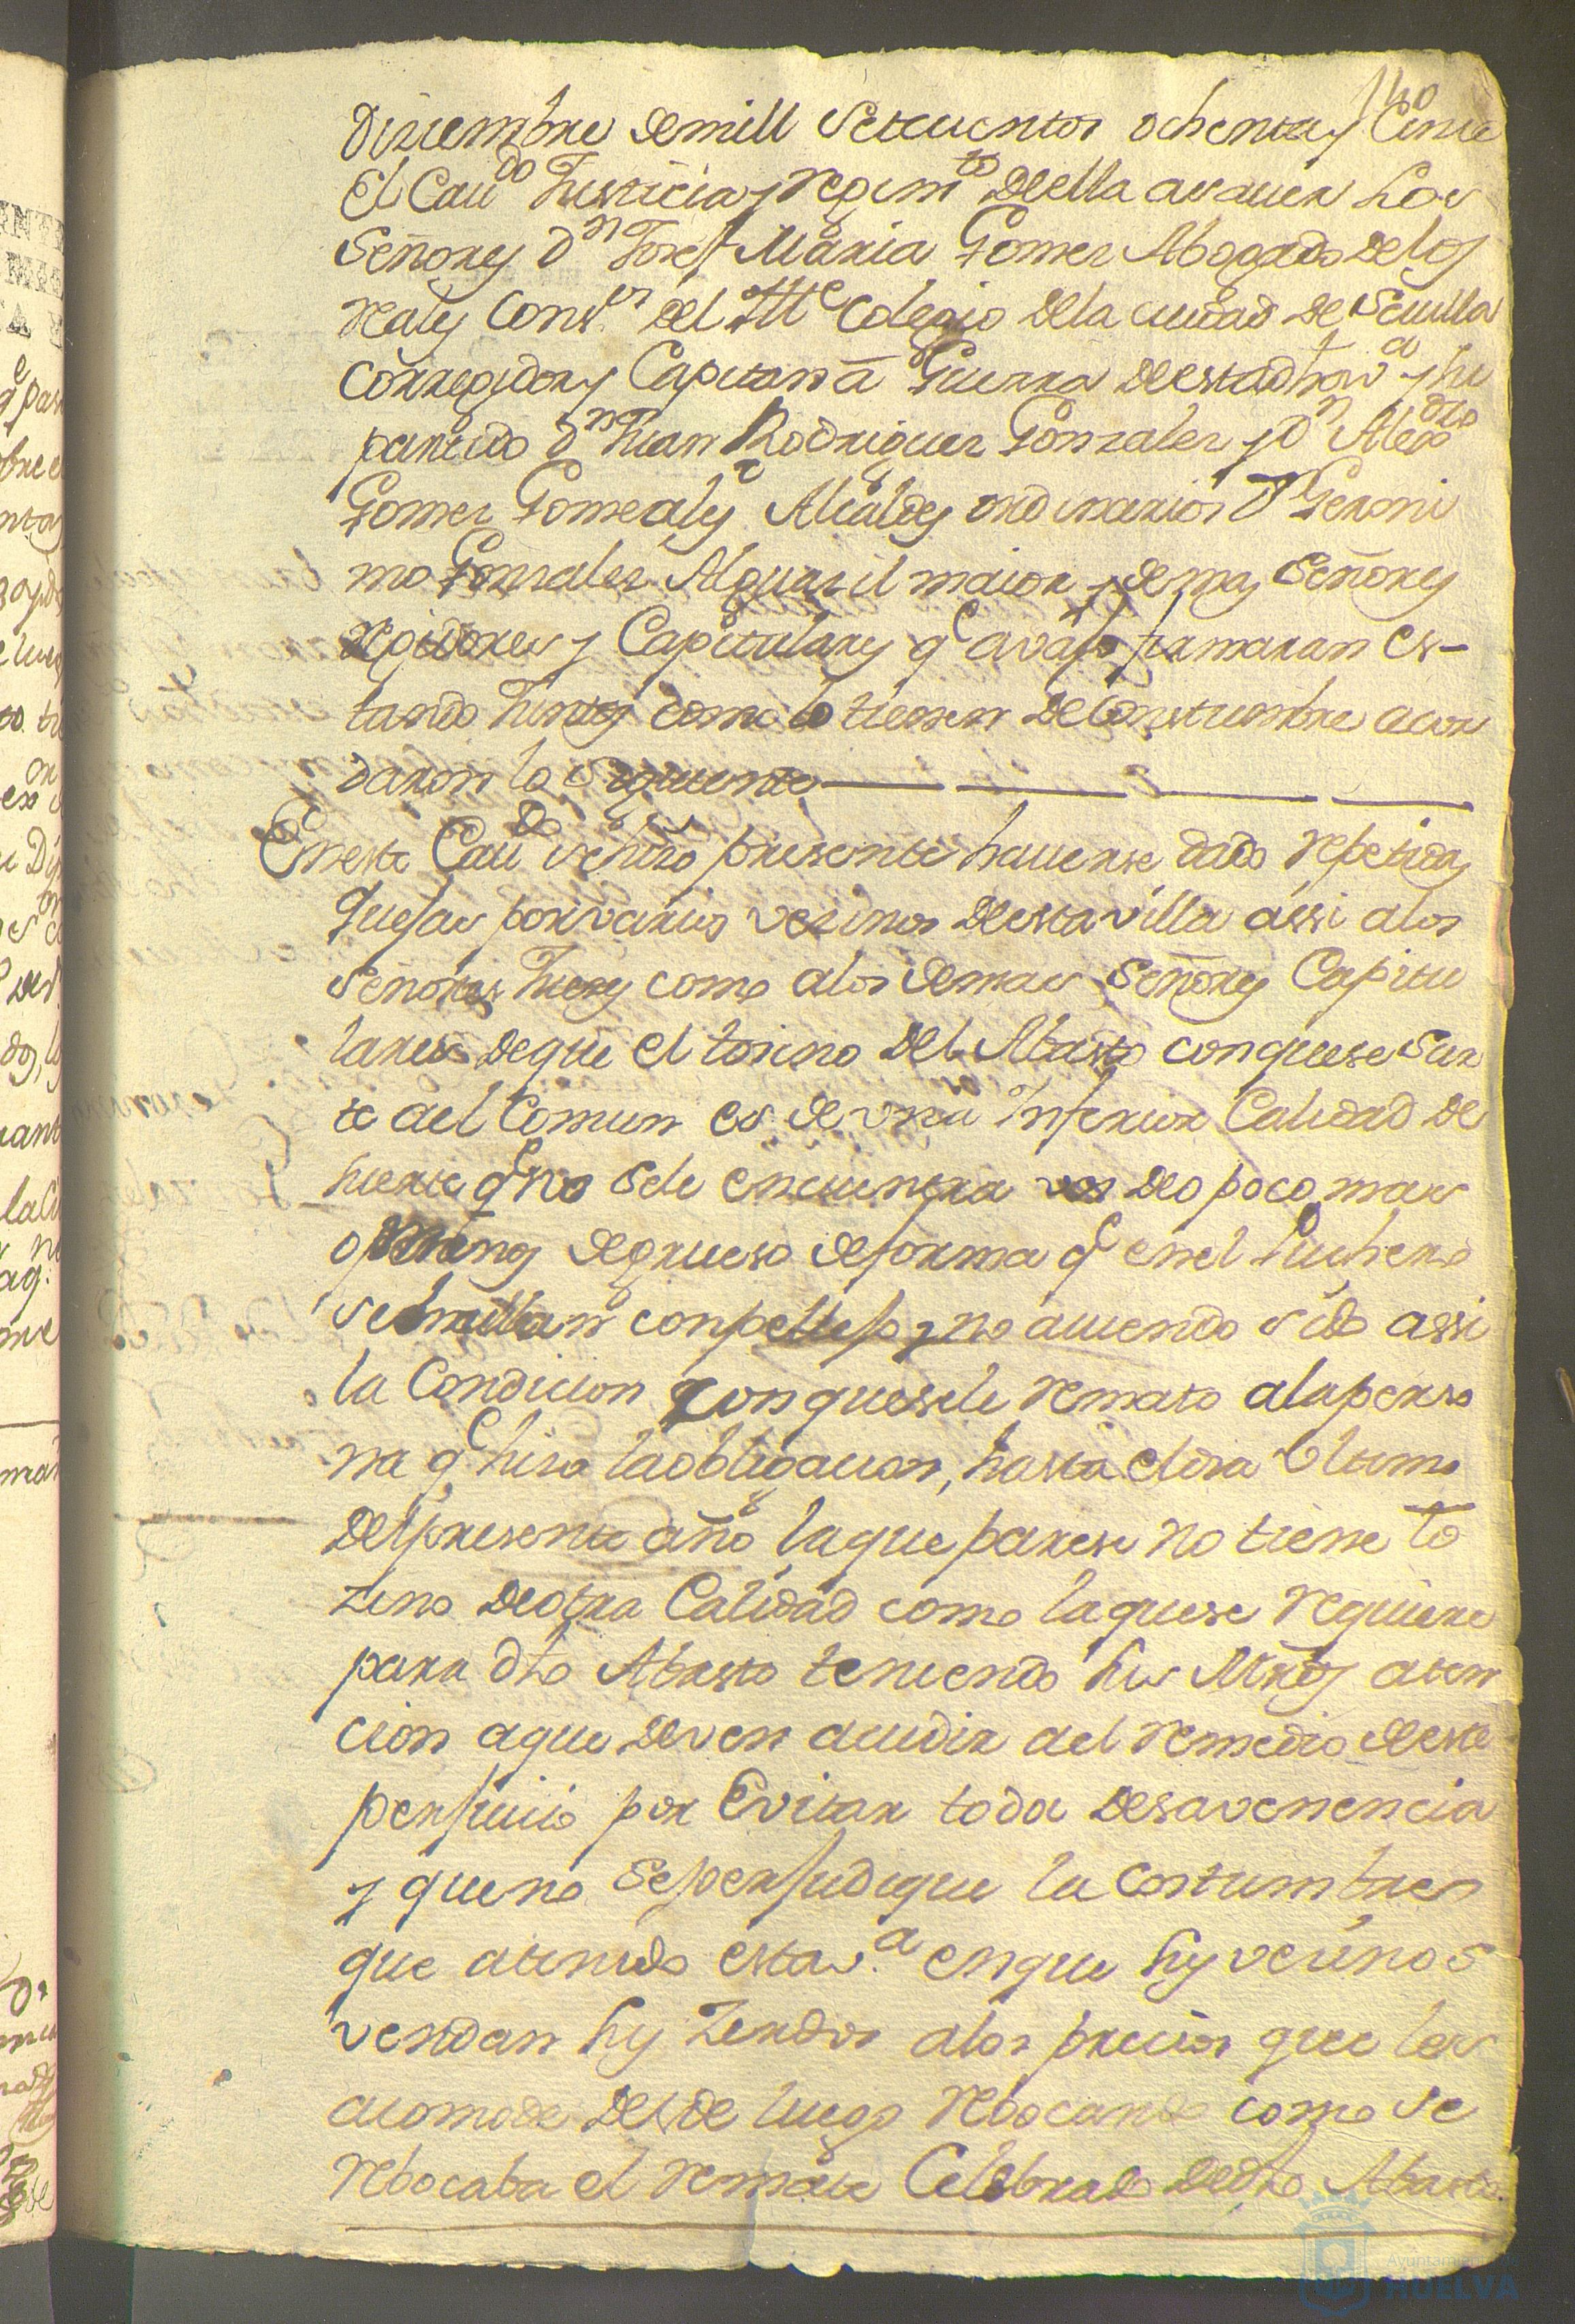 140
Diziembre de mill Setecientos ochenta y Cinco
El Cauᵈᵒ Justicia y regimᵗᵒ de ella as auer Los
Señores Dⁿ Josef Maria Gomez Abogado de los
reales Consᵉˢ del Iltᵉ Colegio de la ciudad de Seuilla
Corregidor y Capitan â Guerra de esta dha vᵃ y su
partido Dⁿ Juan Rodriguez Gonzalez y Dⁿ Alexᵈʳᵒ
Gomez Gomeales Alcaldes ordinarios Dⁿ Geroni
mo Gonzalez Alguazil maior y demas Señores
regidores y Capitulares qᵉ avajo firmaran es-
tando Juntos como lo tienen de Constumbre acor
daron lo Siguiente
En este Cauᵈᵒ se hizo presente hauerse dado repetidas
quejas por varios vezinos de esta villa assi a los
Señores Juezes como a los demas Señores Capitu
lares de que el tosino del Abasto con que se sur
te al Comun es de vna Inferior Calidad de
suerte qᵉ no se le encuentra dedo poco mas
o menos de grueso de forma qᵉ en el Puchero
se hallan con pellejo y no auiendo sido assi
la Condicion con que se le remato a la perso
na qᵉ hiso la obligacion, hasta el dia vltimo
del presente año la que parese no tiene to
zino de otra Calidad como la que se requiere
para dho Abasto teniendo sus Mrds aten
cion a que deven acudir al remedio de este
perjuicio por Evitar toda desavenencia
y que no se perjudique la costumbre
que a tenido esta vᵃ en que sus vecinos
vendan sus Zerdos a los precios que les
acomode desde luego rebocando como se
rebocaba el remate Celebrado de dho Abasto
Ayuntamiento de
HUELVA